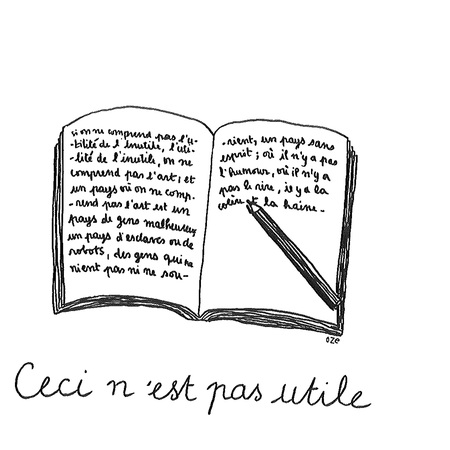 si on ne comprend pas l'u-
-tilité de l'inutile, l'uti-
-lité de l'inutile, on ne
comprend pas l'art, et
un pays où on ne comp-
-rend pas l'art est un
pays de gens malheureux
un pays d'esclaves ou de
robots, des gens qui ne
rient pas ni ne sou-
-rient, un pays sans
esprit; où il n'y a pas
l'humour, où il n'y a
pas le rire, il y a la
colère et la haine.
oze
Ceci n'est pas utile